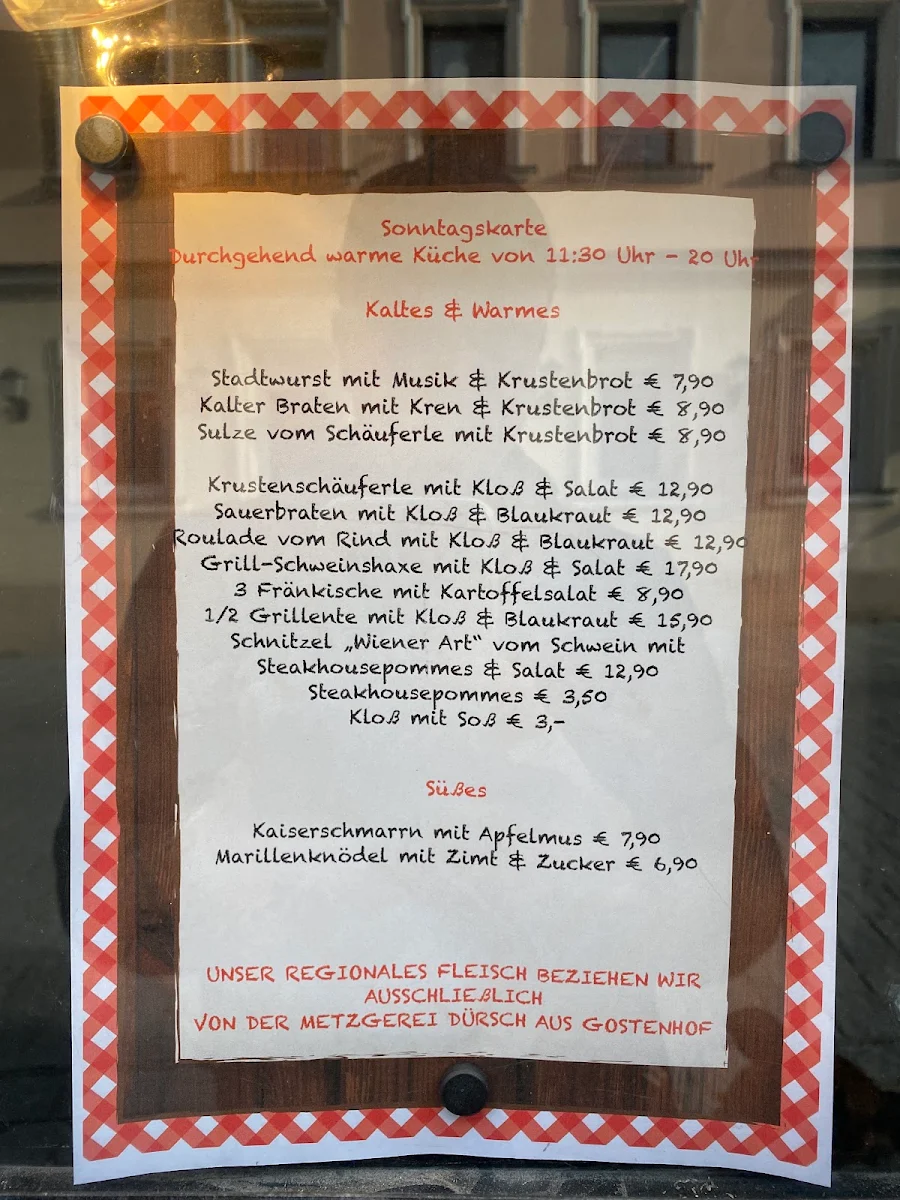 Sonntagskarte
Durchgehend warme Küche von 11:30 Uhr - 20 Uhr
Kaltes & Warmes
Stadtwurst mit Musik & Krustenbrot € 7,90
Kalter Braten mit Kren & Krustenbrot € 8,90
Sulze vom Schäuferle mit Krustenbrot € 8,90
Krustenschäuferle mit Kloß & Salat € 12,90
Sauerbraten mit Kloß & Blaukraut € 12,90
Roulade vom Rind mit Kloß & Blaukraut € 12,90
Grill-Schweinshaxe mit Kloß & Salat € 17,90
3 Fränkische mit Kartoffelsalat € 8,90
1/2 Grillente mit Kloß & Blaukraut € 15,90
Schnitzel „Wiener Art" vom Schwein mit
Steakhousepommes & Salat € 12,90
Steakhousepommes € 3,50
Kloß mit Soß € 3,-
Süßes
Kaiserschmarrn mit Apfelmus € 7,90
Marillenknödel mit Zimt & Zucker € 6,90
UNSER REGIONALES FLEISCH BEZIEHEN WIR
AUSSCHLIEßLICH
VON DER METZGEREI DÜRSCH AUS GOSTENHOF